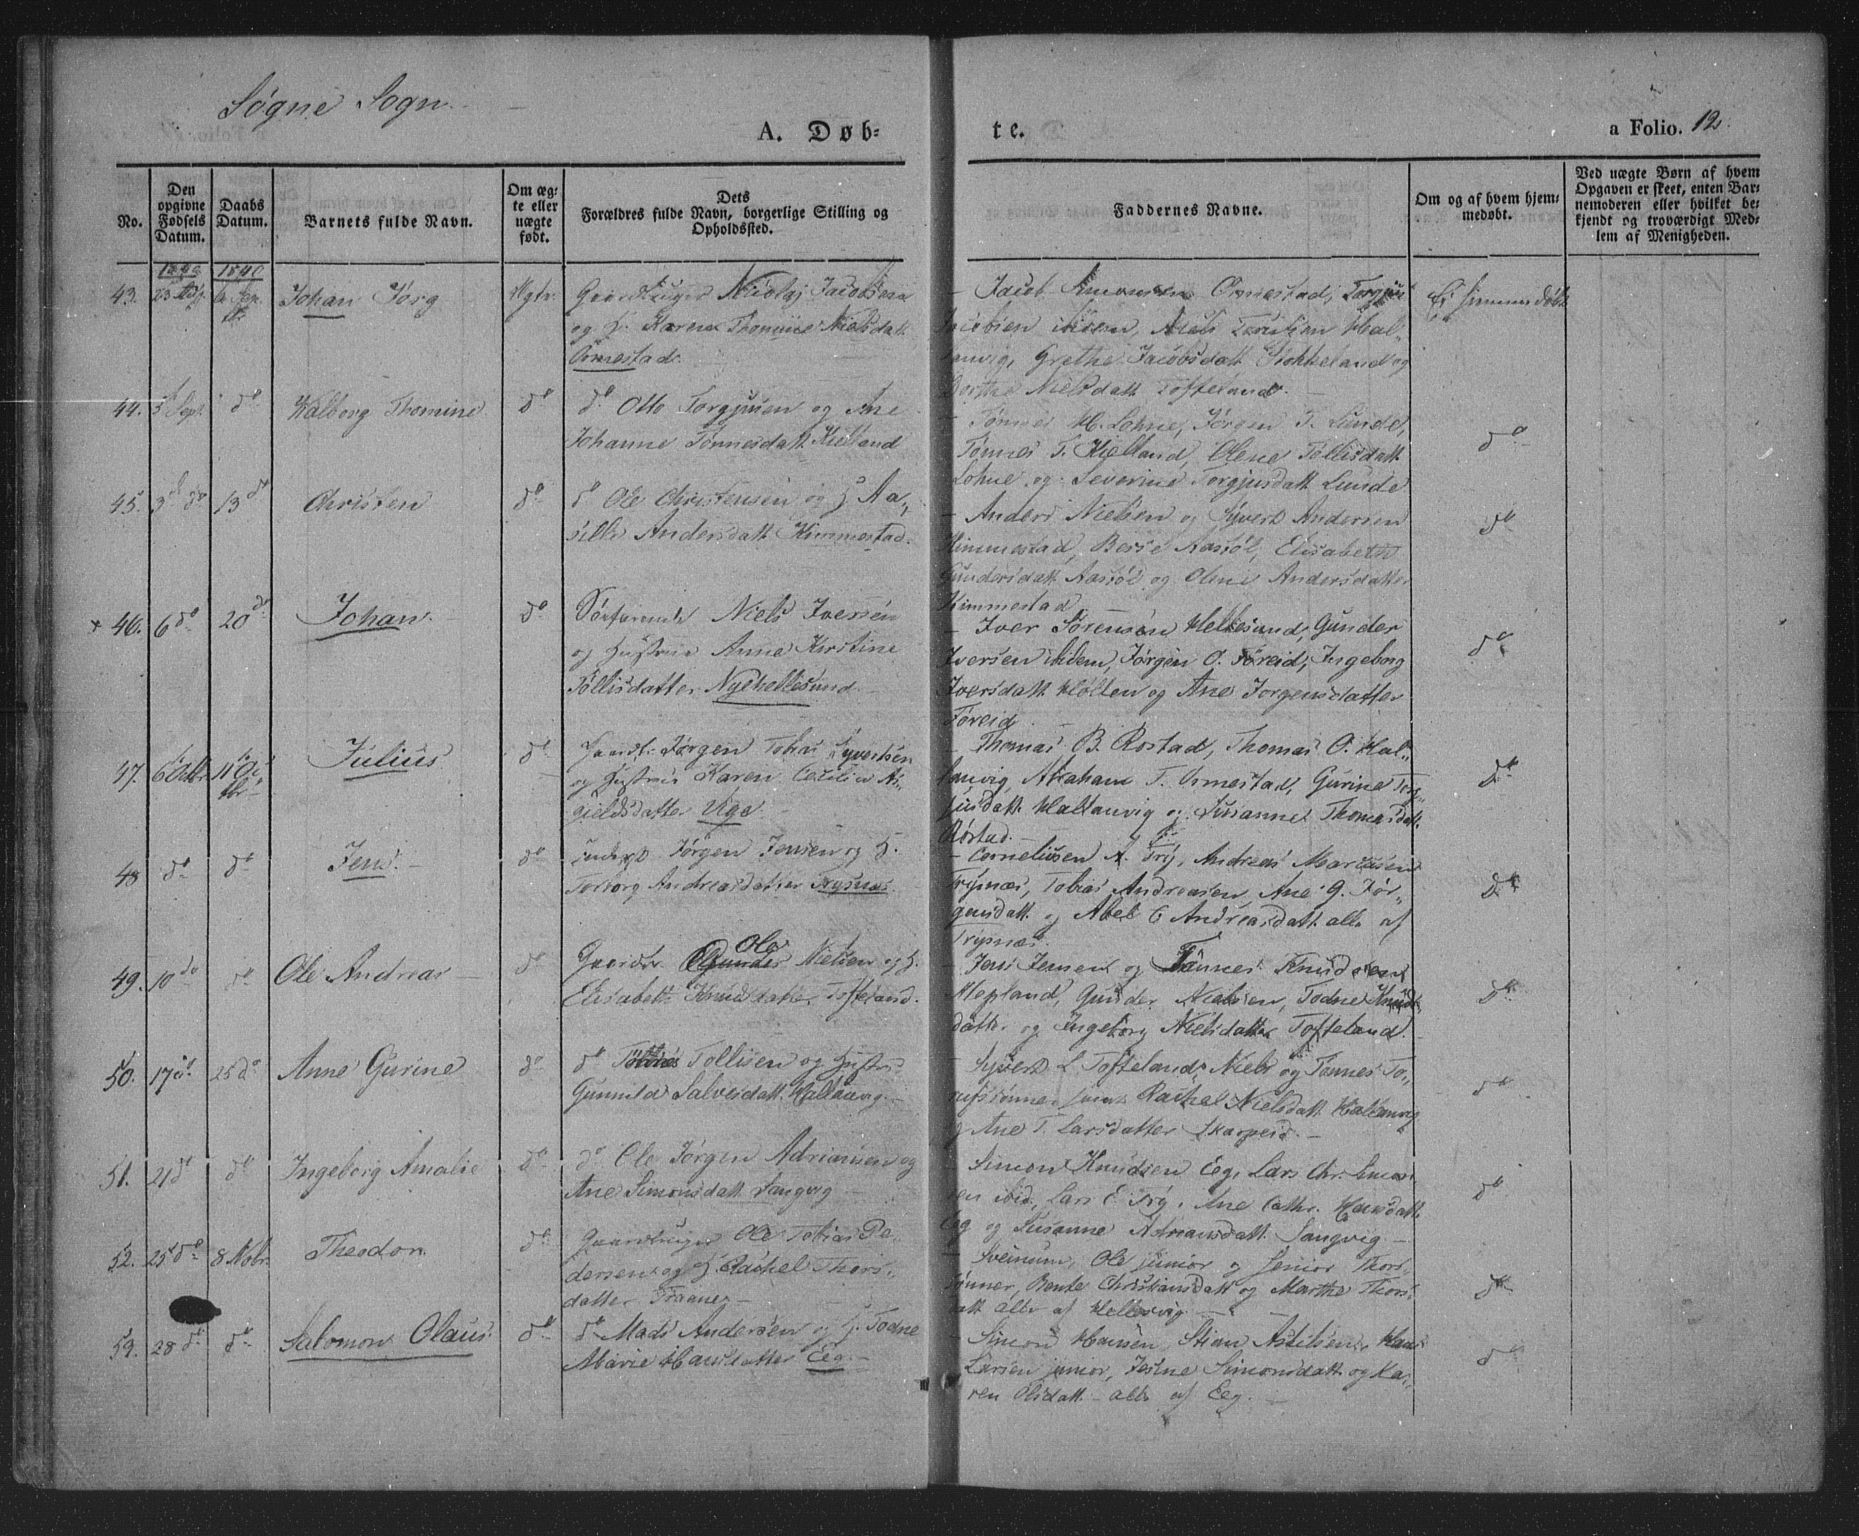 Søgne Sogn
A. Døb-
te.
a Folio. 12.
No.
Den opgivne Fødsels Datum.
Daabs Datum.
Barnets fulde Navn.
Om ægte eller uægte født.
Dets
Forældres fulde Navn, borgerlige Stilling og Opholdssted.
Faddernes Navne.
Om og af hvem hjemmedøbt.
Ved uægte Børn af hvem
Opgaven er skeet, enten Bar-
nemoderen eller hvilket be-
kjendt og troværdigt Med-
lem af Menigheden.
1840 1840
43. Johan Jørg Ægte Gaardbruger Nicolaj Jacobsen
og H. Karen Thomine Nielsdatt
Ormestad
Jacob Simonsen Ormestad, Torgius
Jacobsen ibidem, Niels
Grethe Jacobsdatt Stokkeland og
Berthe Nielsdatt Tofteland
Ei hjemmedøbt
44. 5 Sept. do Valborg Thomine do do Otto Torgjusen og Ane
Johanne Tønnesdatt Kielland
Tønnes H. Lohne, Jørgen T. Lunde,
Tønnes T. Kielland, Olene Tollisdatt
Lohne og Severine Torgjusdatt Lunde
do
45. 3 do 13 do Christen do do Ole Christensen og H. Aa-
sille Andersdatt Kimmestad
Anders Nielsen og Syvert Andersen
Kimmestad, Berse Aasiøl, Elisabeth
Gundersdatt Aasiøl og Olene Andersdatter
Kimmestad
do
46. 6 do 20 do Johan do Søefarende Niels Iversen
og Hustrue Anne Kirstine
Tollisdatter Nyehellesund
Iver Sørensen Hellesund, Gunder
Iversen ibidem, Jørgen O. Føreid, Ingeborg
Iversdatt Holten og Ane Jørgensdatter
Føreid
do
47. 6 Octbr. 11 Octbr Julius do Gaardb. Jørgen Tobias Syvertsen
og Hustrue Karen Cecilie As-
gieldsdatter Ege
Thomas B. Rostad, Thomas O. Hal-
landvig, Abraham T. Ormestad, Gurine Tor-
jusdatt Hallandvig og Susanne Thomasdatt
Røstad
do
48 do do Jens do Jørgen Jensen og H.
Torborg Andreasdatter Trysnæs
Corneliusen A. Try, Andreas Marcusen
Trysnæs, Tobias Andreasen, Ane G. Jør-
gensdatt og Abel C Andreasdatt alle af
Trysnæs
do
49. 10 do do Ole Andreas do Gaardbr Ole Nielsen og H.
Elisabeth Knudsdatter Tofteland
Jens Jensen og Tønnes Knudsen
Mepland, Gunder Nielsen, Todne Knuds-
datter og Ingeborg Nielsdatter Tofteland
do
50. 17 do 25 do Anne Gurine do do Tollisen og Hustr.
Gunnild Salvesdatt Hallandvig
Syvert L Tofteland, Niels og Tønnes To-
samt Rachel Nielsdatt Hallandvig
og Ane T. Larsdatter Skarpeid
do
51. 21 do do Ingeborg Amalie do do Ole Jørgen Adriansen og
Ane Simonsdatt Langvig
Simon Knudsen Eeg, Lars Chr. Simon-
sen ibid, Lars E Try, Ane Cathr. Hansdatt
Eeg og Susanne Adriansdatt Langvig
do
52. 25 do 8 Novbr. Theodor do Gaardbruger Ole Tobias Pe-
dersen og H. Rachel Thors-
datter Traanes
Sveinum, Ole junior og Senior Thors-
sønner, Bente Christiansdatt og Marthe Thors-
datt alle af Hellesvig
do
53. 28 do do Salomon Olaus do do Mads Andersen og H. Todne
Marie Hansdatter Eeg
Simon Hansen, Stian Askilsen, Hans
Larsen junior, Josine Simonsdatt og Ka-
ren Olsdatt alle af Eeg
do